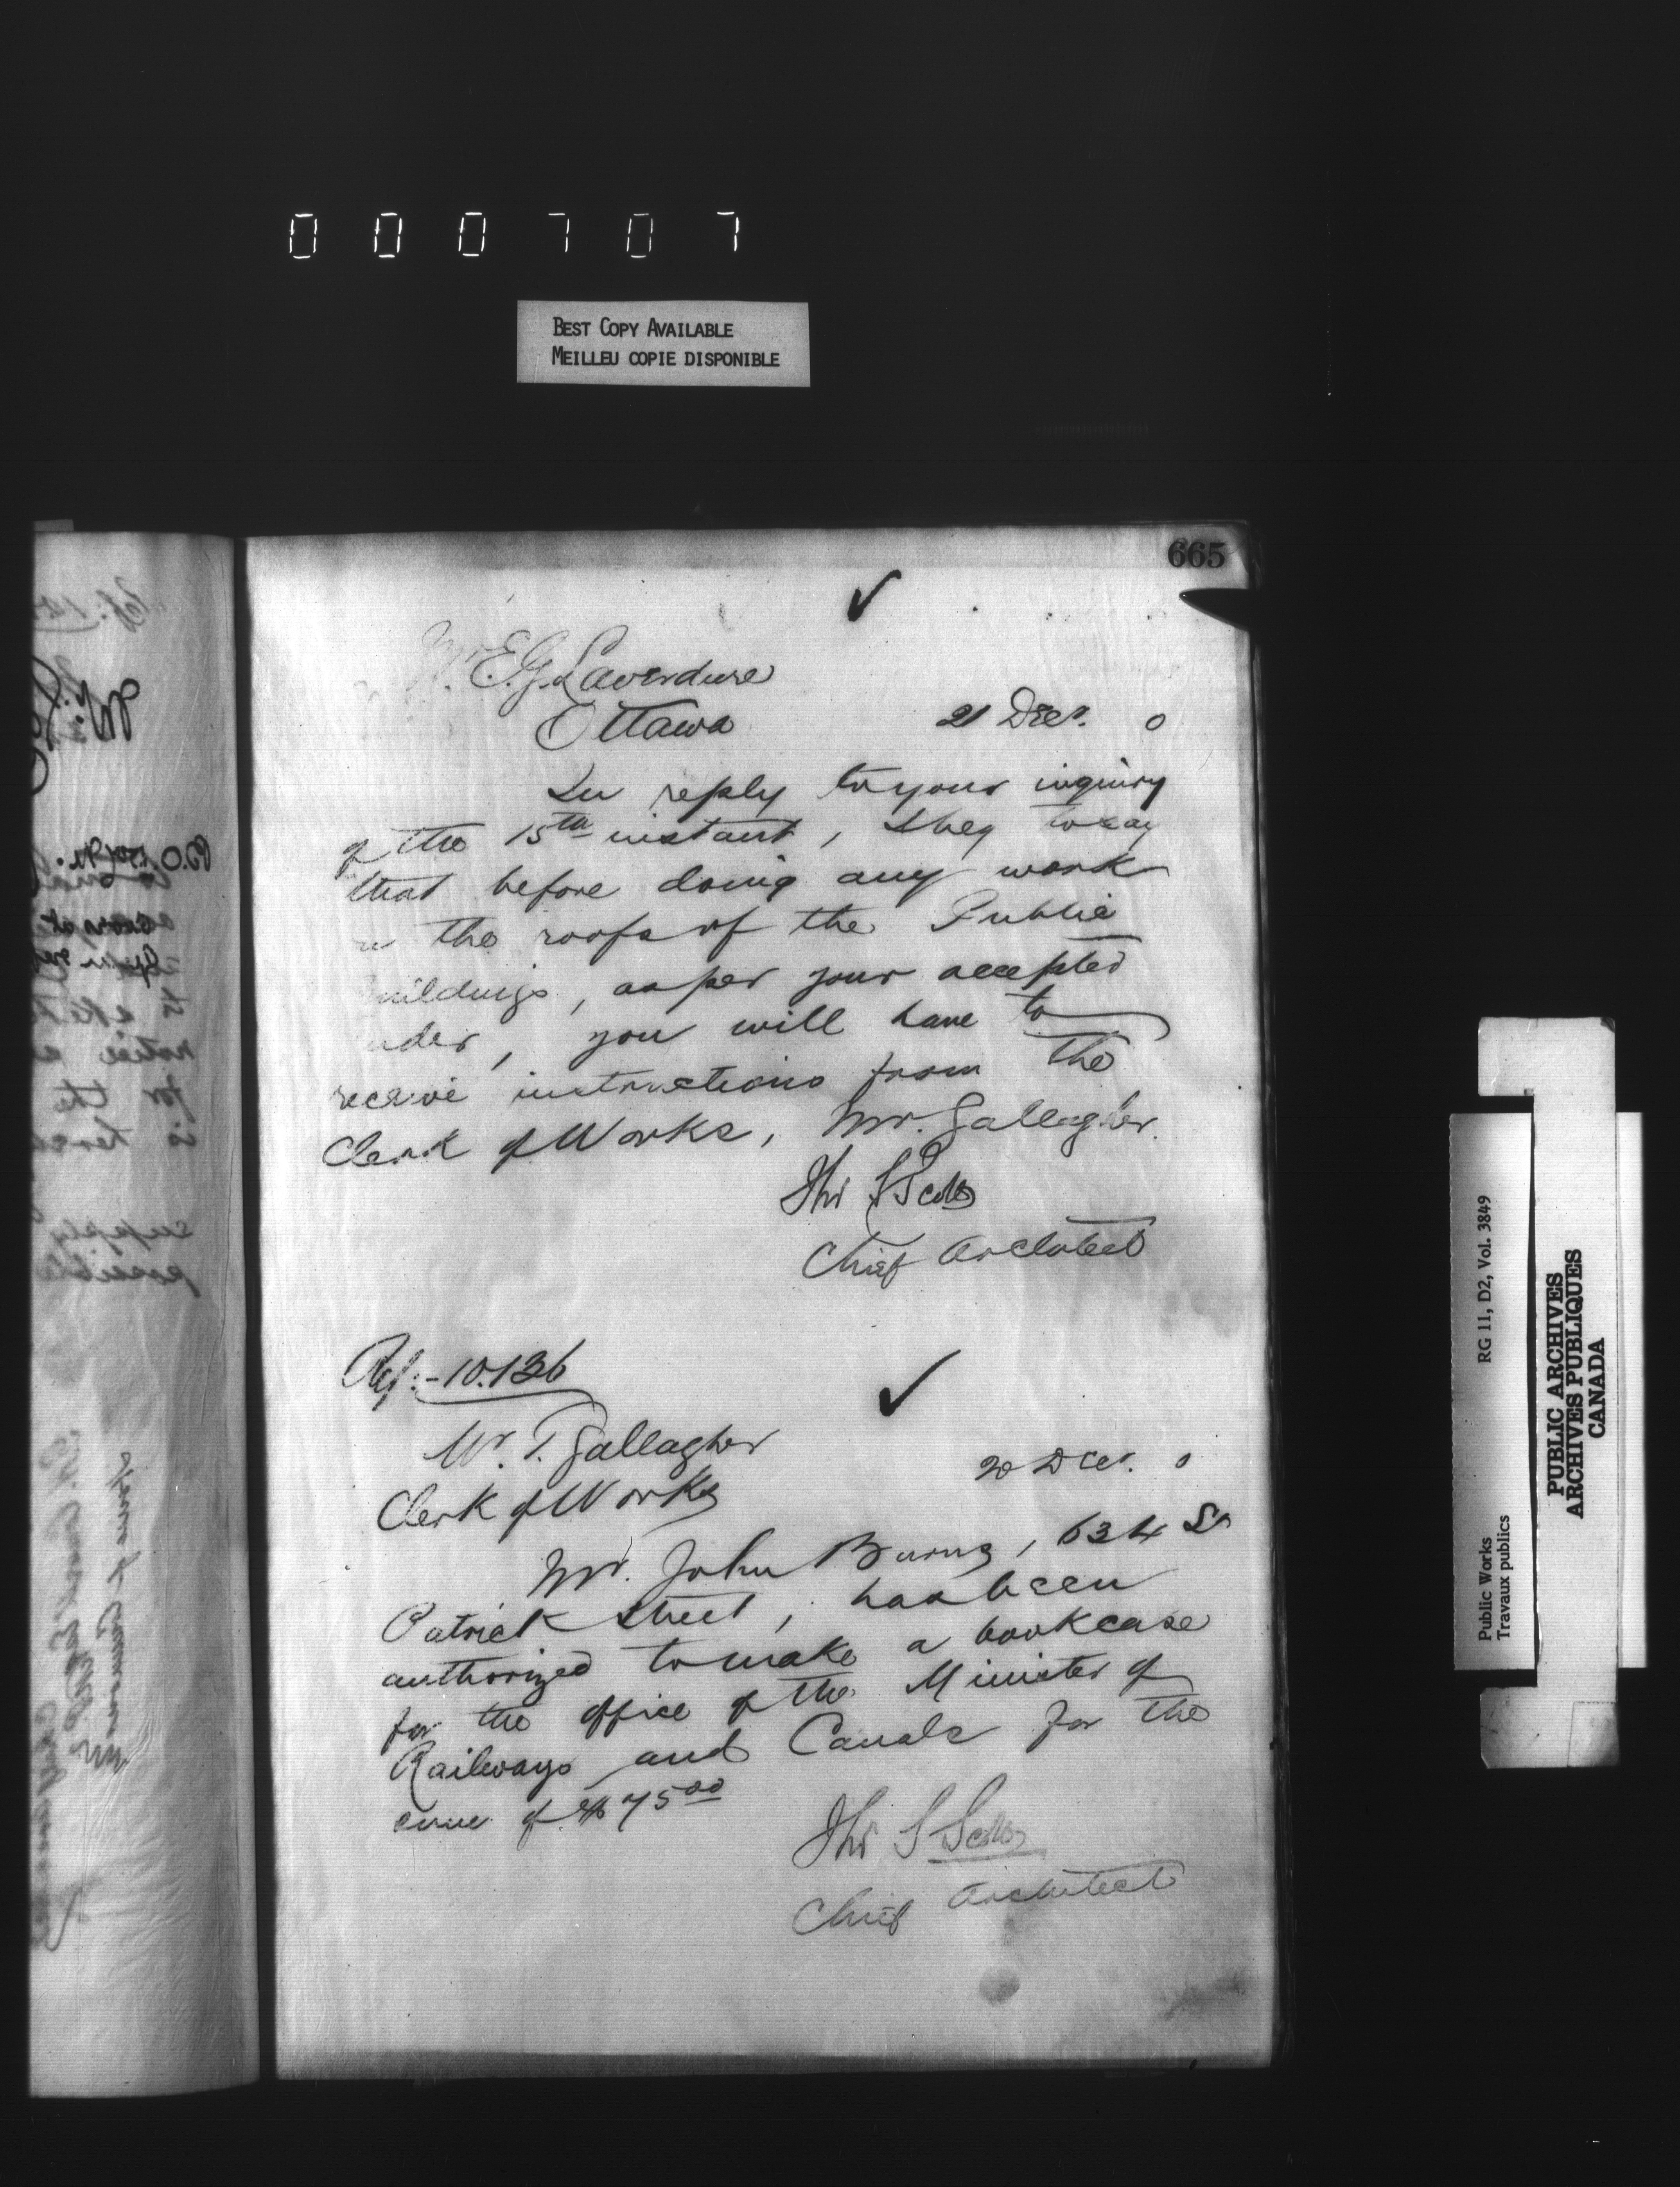 000707
BEST COPY AVAILABLE
MEILLEU COPIE DISPONIBLE
665
Mr. E. G. Laverdure
Ottawa 21 Decr. 0
In reply to your inquiry
of the 15th instant, I beg to say
that before doing any work
the roofs of the Public
uildings, as per your accepted
nder, you will have to
receive instructions from the
Clerk of Works, Mr. Gallagher.
Thos S Scott
Chief Architect
Ref:- 10.136
Mr. T. Gallagher
Clerk of Works 20 Decr. 0
Mr. John Burns, 634 St
Patrick Street, has been
authorized to make a bookcase
for the office of the Minister of
Railways and Canals for the
sum of $75.00
Thos S Scott
Chief Architect
Public Works
Travaux publics
RG 11, D2, Vol. 3849
PUBLIC ARCHIVES
ARCHIVES PUBLIQUES
CANADA